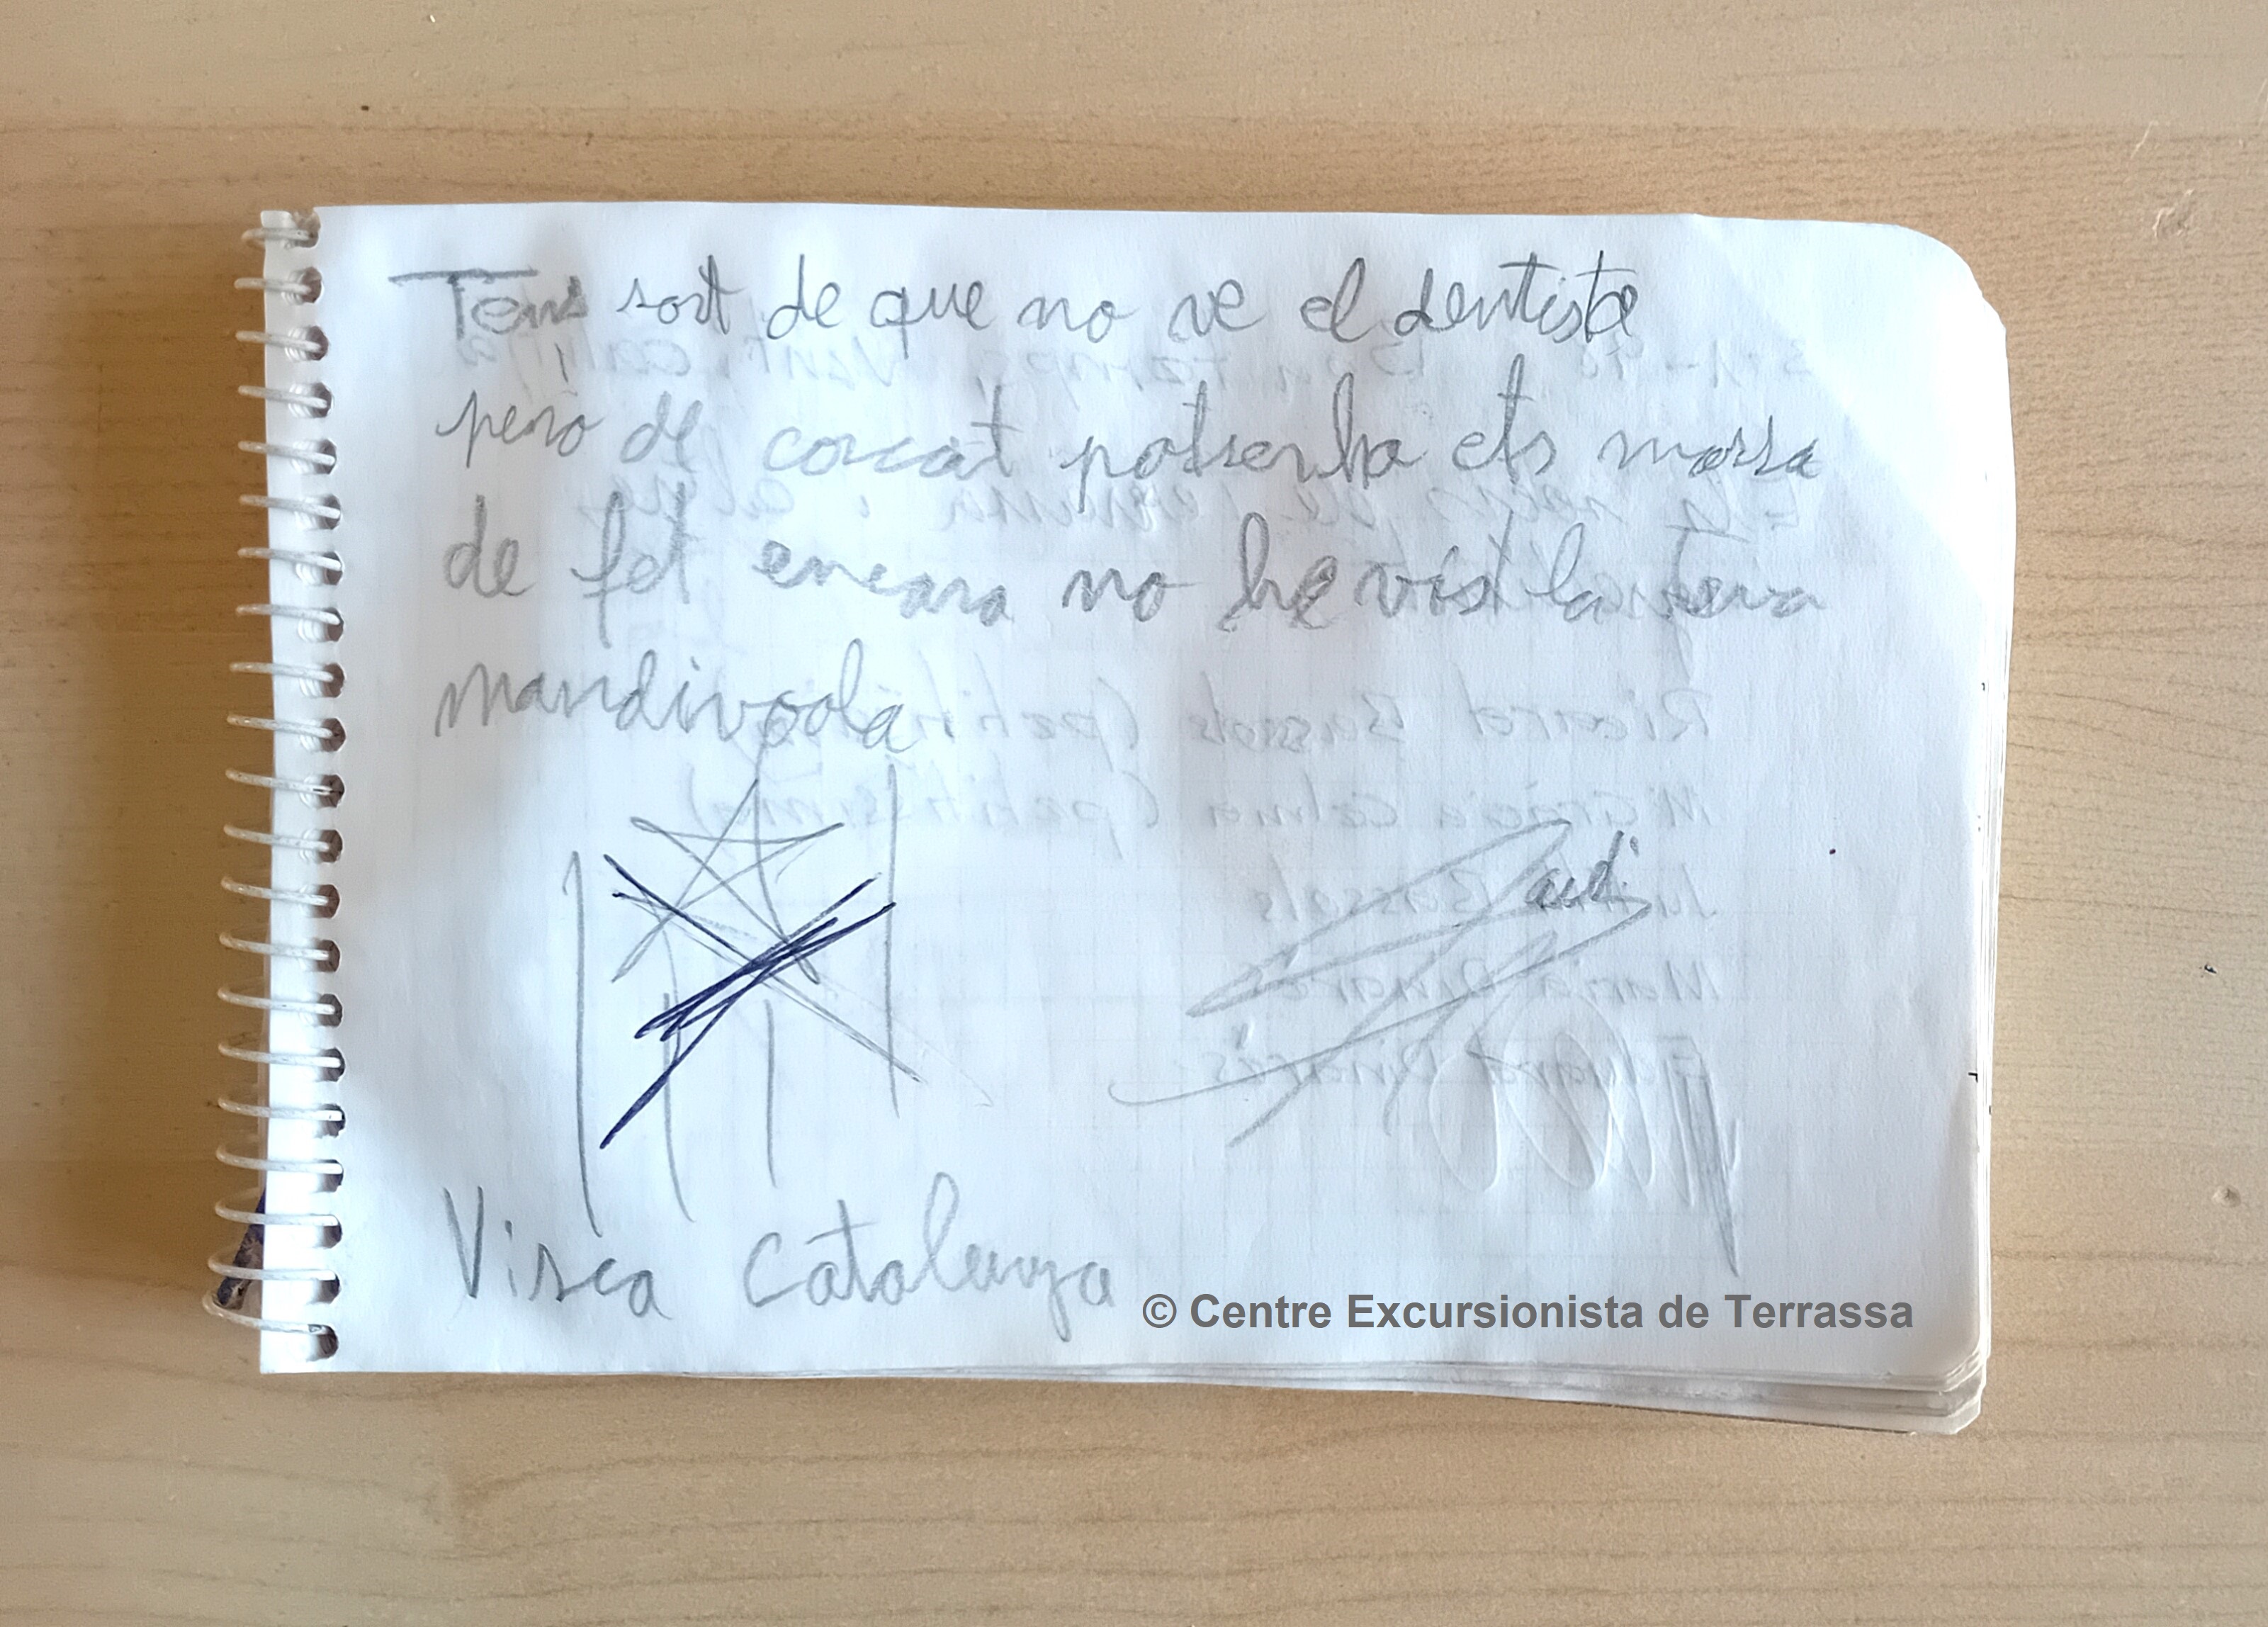 Tens sort de que no ve el dentista
pero de corcat potserho ets massa
de fet encara no he vist la teva
mandivoola
Visca Catalunya
© Centre Excursionista de Terrassa